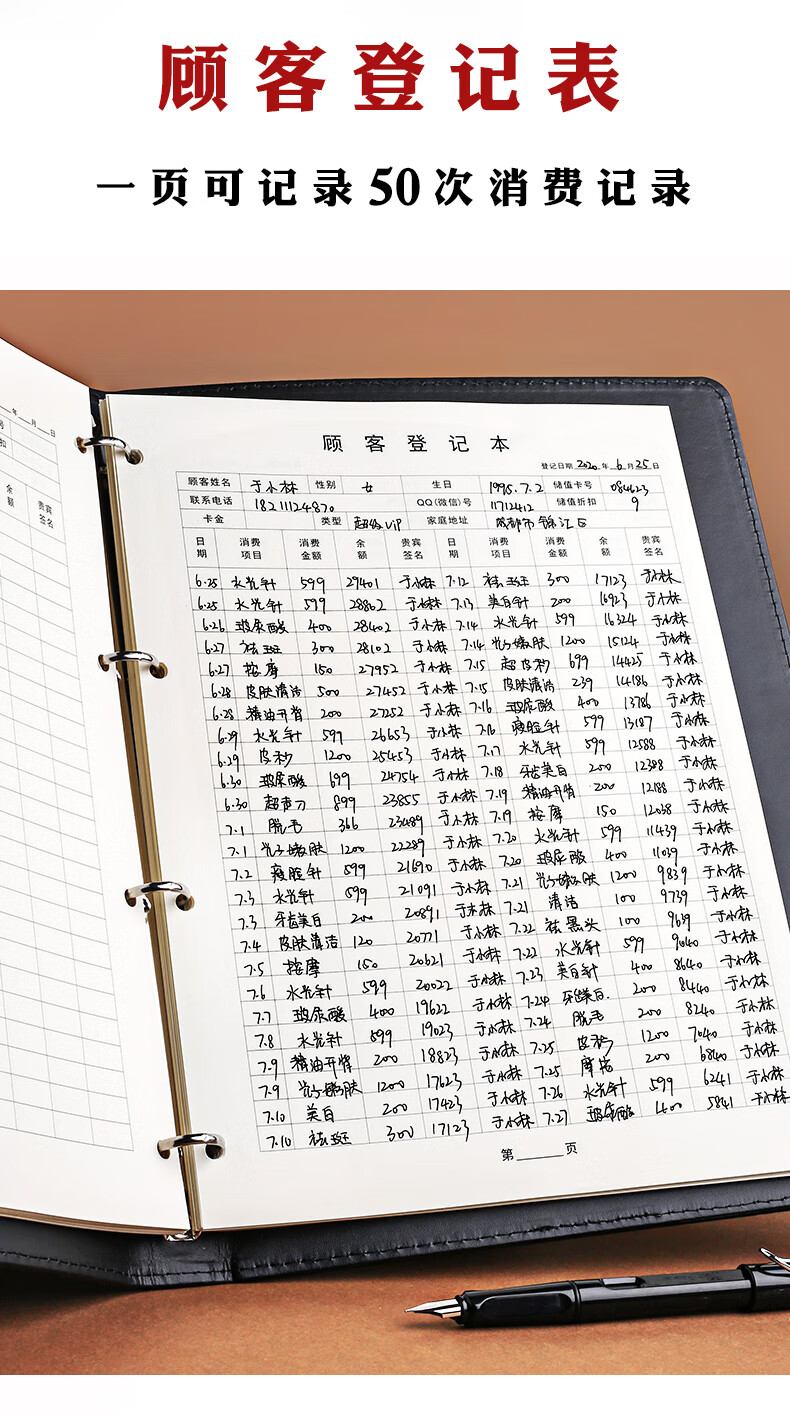 顾客登记表
一页可记录50次消费记录
年 月 日
余额 贵宾签名
顾客登记本
登记日期 2020 年 6 月 25 日
顾客姓名 于小林 性别 女 生日 1995.7.2 储值卡号 084623
联系电话 18211124870 QQ(微信)号 11712412 储值折扣 9
卡金 类型 超级VIP 家庭地址 成都市锦江区
日期 消费项目 消费金额 余额 贵宾签名 日期 消费项目 消费金额 余额 贵宾签名
6.25 水光针 599 29401 于小林 7.12 祛斑 300 17123 于小林
6.25 水光针 599 28802 于小林 7.13 美白针 200 16923 于小林
6.26 玻尿酸 400 28402 于小林 7.14 水光针 599 16324 于小林
6.27 祛斑 300 28102 于小林 7.14 光子嫩肤 1200 15124 于小林
6.27 按摩 150 27952 于小林 7.15 超皮秒 699 14425 于小林
6.28 皮肤清洁 500 27452 于小林 7.15 皮肤清洁 239 14186 于小林
6.28 精油开背 200 27252 于小林 7.16 玻尿酸 400 13786 于小林
6.29 水光针 599 26653 于小林 7.16 瘦脸针 599 13187 于小林
6.29 皮秒 1200 25453 于小林 7.17 水光针 599 12588 于小林
6.30 玻尿酸 699 24754 于小林 7.18 牙齿美白 200 12388 于小林
6.30 超声刀 899 23855 于小林 7.19 精油开背 200 12188 于小林
7.1 脱毛 366 23489 于小林 7.19 按摩 150 12038 于小林
7.1 光子嫩肤 1200 22289 于小林 7.20 水光针 599 11439 于小林
7.2 瘦脸针 599 21690 于小林 7.20 玻尿酸 400 11039 于小林
7.3 水光针 599 21091 于小林 7.21 光子嫩肤 1200 9839 于小林
7.3 牙齿美白 200 20891 于小林 7.21 清洁 100 9739 于小林
7.4 皮肤清洁 120 20771 于小林 7.22 祛黑头 100 9639 于小林
7.5 按摩 150 20621 于小林 7.22 水光针 599 9040 于小林
7.6 水光针 599 20022 于小林 7.23 美白针 400 8640 于小林
7.7 玻尿酸 400 19622 于小林 7.24 牙齿美白 200 8440 于小林
7.8 水光针 599 19023 于小林 7.24 脱毛 200 8240 于小林
7.9 精油开背 200 18823 于小林 7.25 皮秒 1200 7040 于小林
7.9 光子嫩肤 1200 17623 于小林 7.25 200 6840 于小林
7.10 美白 200 17423 于小林 7.26 水光针 599 6241 于小林
7.10 祛斑 300 17123 于小林 7.27 玻尿酸 400 5841 于小林
第 页